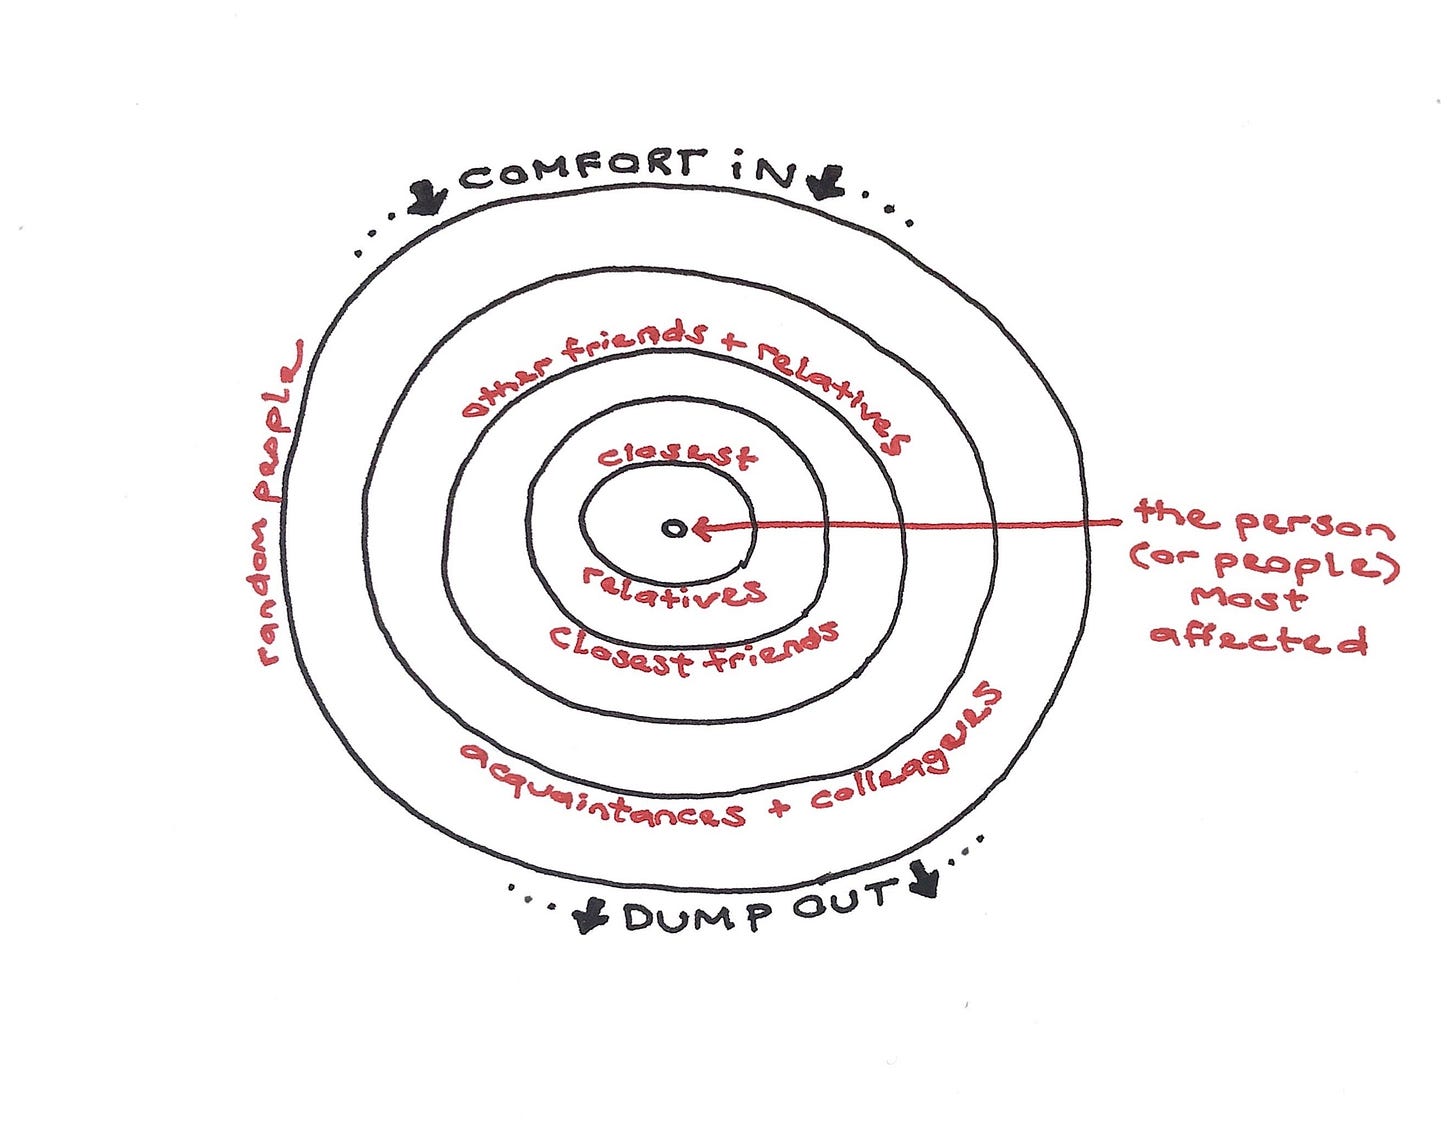 COMFORT iN
other friends + relatives
closest
relatives
closest friends
acquaintances + colleagues
random people
the person
(or people)
most
affected
DUMP OUT